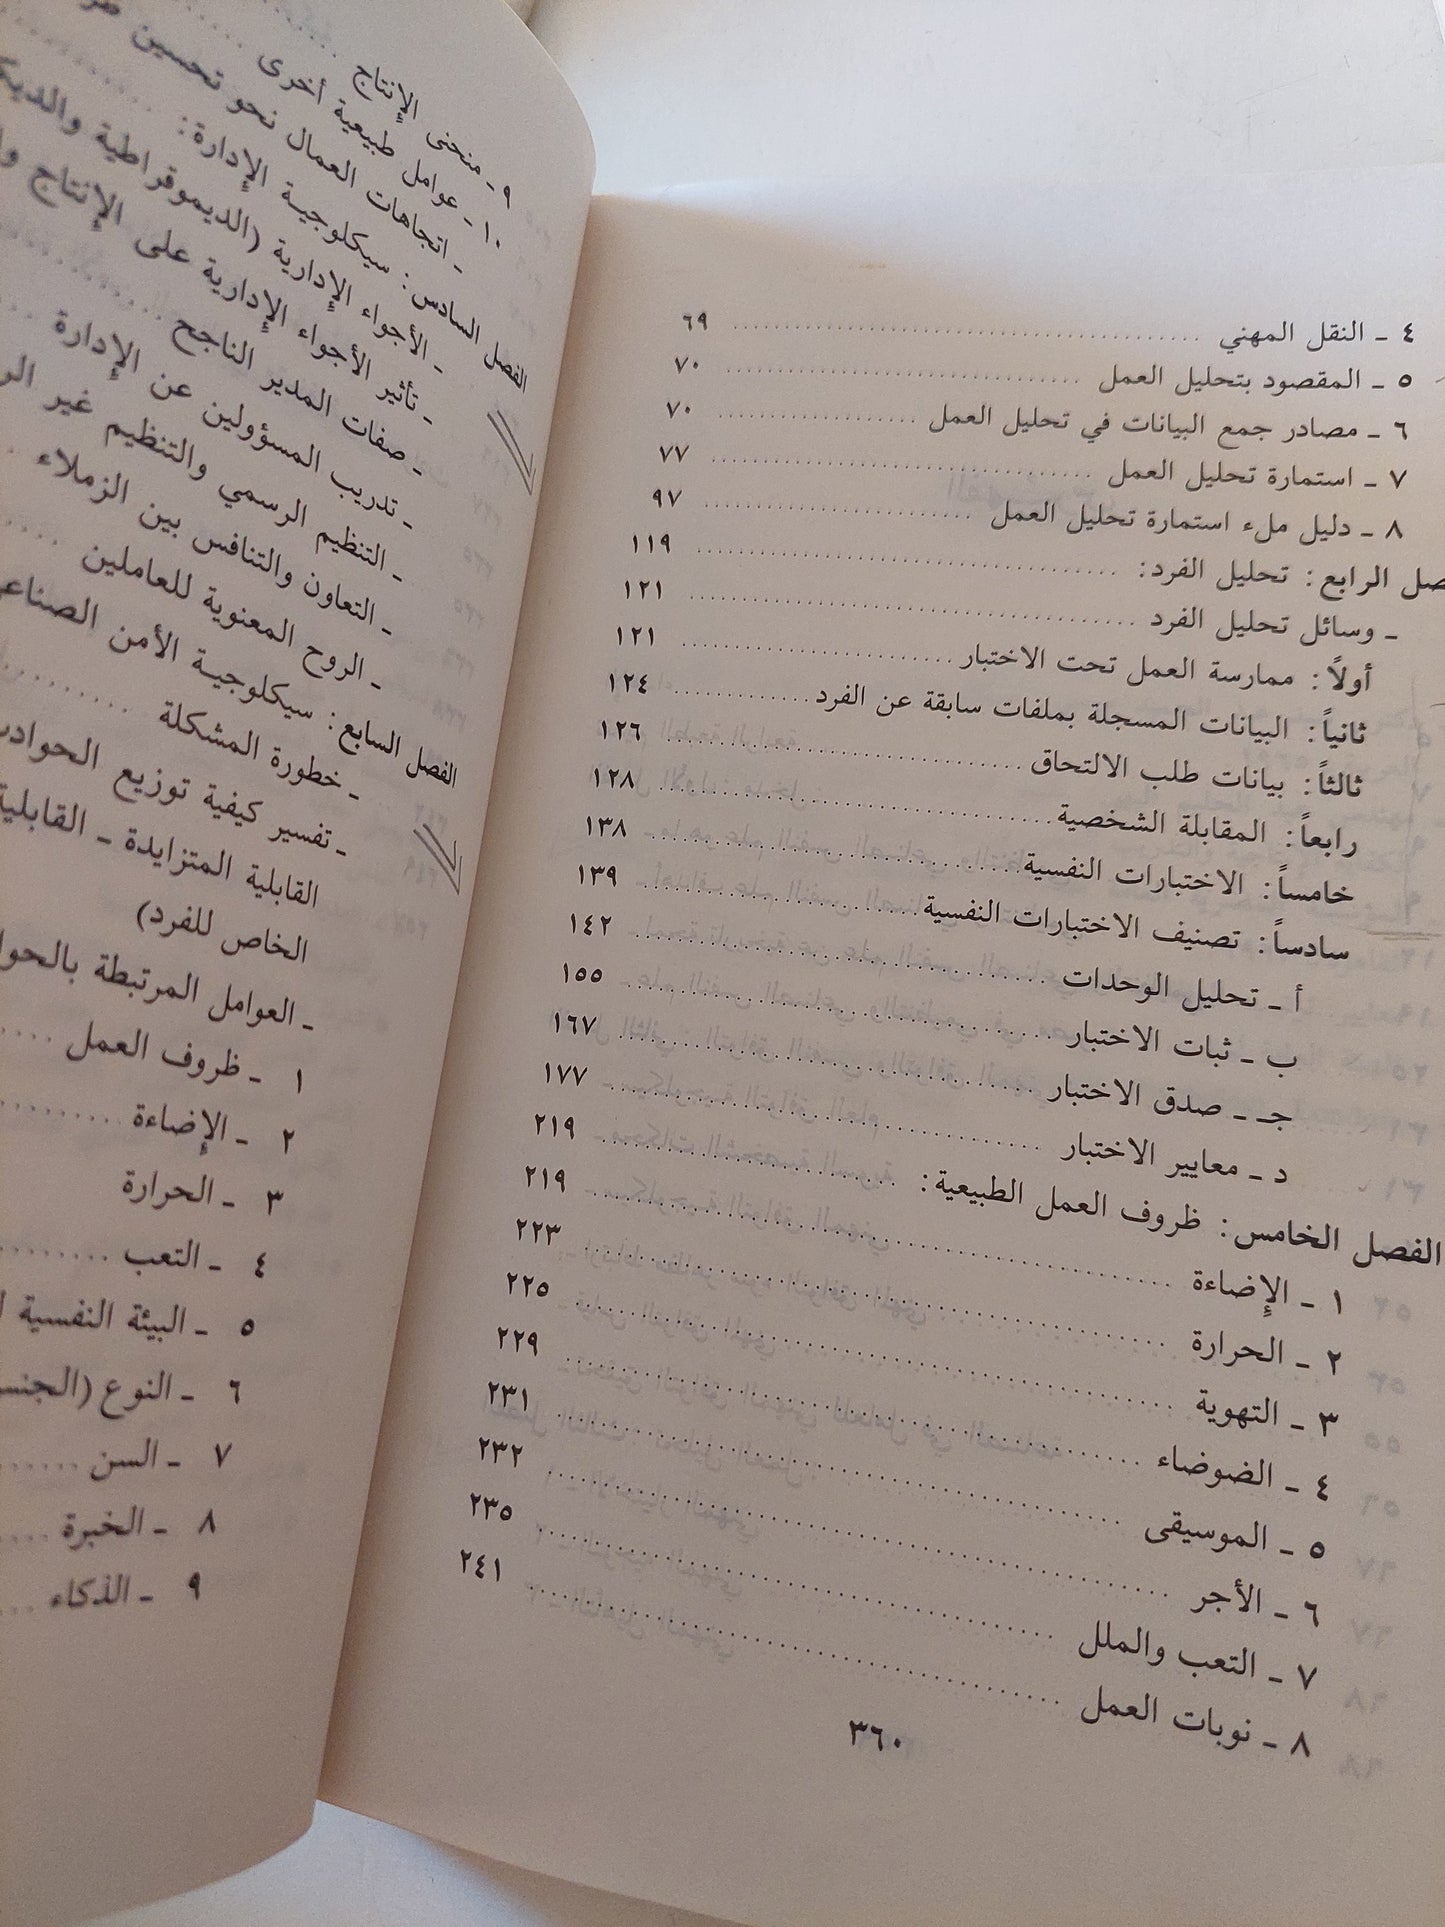 ٤ ـ النقل المهني ........ ٦٩
٥ ـ المقصود بتحليل العمل ........ ٧٠
٦ ـ مصادر جمع البيانات في تحليل العمل ........ ٧٠
٧ ـ استمارة تحليل العمل ........ ٧٧
٨ ـ دليل ملء استمارة تحليل العمل ........ ٩٧
صل الرابع: تحليل الفرد: ........ ١١٩
ـ وسائل تحليل الفرد ........ ١٢١
أولاً: ممارسة العمل تحت الاختبار ........ ١٢١
ثانياً: البيانات المسجلة بملفات سابقة عن الفرد ........ ١٢٤
ثالثاً: بيانات طلب الالتحاق ........ ١٢٦
رابعاً: المقابلة الشخصية ........ ١٢٨
خامساً: الاختبارات النفسية ........ ١٣٨
سادساً: تصنيف الاختبارات النفسية ........ ١٣٩
أ ـ تحليل الوحدات ........ ١٤٢
ب ـ ثبات الاختبار ........ ١٥٥
جـ ـ صدق الاختبار ........ ١٦٧
د ـ معايير الاختبار ........ ١٧٧
الفصل الخامس: ظروف العمل الطبيعية: ........ ٢١٩
١ ـ الإضاءة ........ ٢١٩
٢ ـ الحرارة ........ ٢٢٣
٣ ـ التهوية ........ ٢٢٥
٤ ـ الضوضاء ........ ٢٢٩
٥ ـ الموسيقى ........ ٢٣١
٦ ـ الأجر ........ ٢٣٢
٧ ـ التعب والملل ........ ٢٣٥
٨ ـ نوبات العمل ........ ٢٤١
٣٦٠
٩ ـ منحنى الإنتاج ........
١٠ ـ عوامل طبيعية أخرى ........
ـ اتجاهات العمال نحو تحسين
الفصل السادس: سيكلوجية الإدارة: ........
ـ الأجواء الإدارية (الديموقراطية والديك
ـ تأثير الأجواء الإدارية على الإنتاج
ـ صفات المدير الناجح ........
ـ تدريب المسؤولين عن الإدارة ........
ـ التنظيم الرسمي والتنظيم غير الر
ـ التعاون والتنافس بين الزملاء ........
ـ الروح المعنوية للعاملين ........
الفصل السابع: سيكلوجية الأمن الصناعي
ـ خطورة المشكلة ........
ـ تفسير كيفية توزيع الحوادث
القابلية المتزايدة ـ القابلية
الخاص للفرد)
ـ العوامل المرتبطة بالحوا
١ ـ ظروف العمل ........
٢ ـ الإضاءة ........
٣ ـ الحرارة
٤ ـ التعب ........
٥ ـ البيئة النفسية
٦ ـ النوع (الجنس
٧ ـ السن ........
٨ ـ الخبرة ........
٩ ـ الذكاء ........